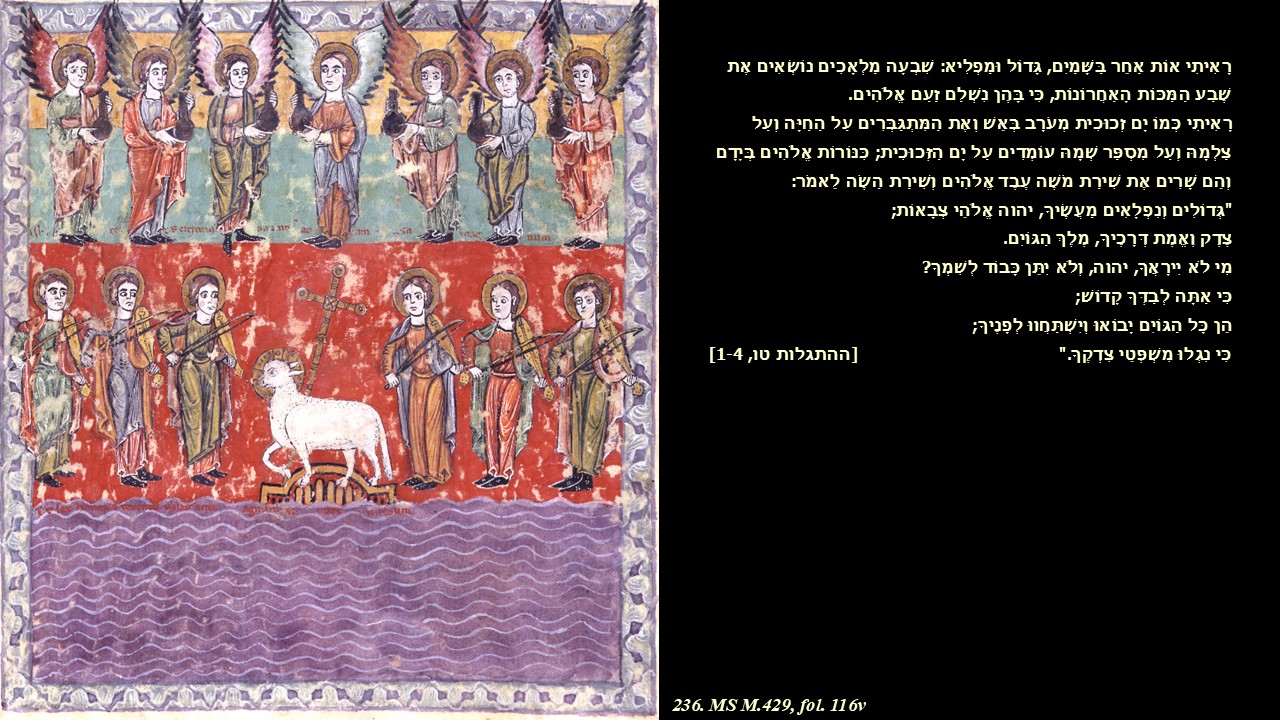 רָאִיתִי אוֹת אַחֵר בַּשָּׁמַיִם, גָּדוֹל וּמַפְלִיא: שִׁבְעָה מַלְאָכִים נוֹשְׂאִים אֶת
שֶׁבַע הַמַּכּוֹת הָאַחֲרוֹנוֹת, כִּי בָּהֶן נִשְׁלַם זַעַם אֱלֹהִים.
רָאִיתִי כְּמוֹ יָם זְכוּכִית מְעֹרָב בְּאֵשׁ וְאֶת הַמִּתְגַּבְּרִים עַל הַחַיָּה וְעַל
צַלְמָהּ וְעַל מִסְפַּר שְׁמָהּ עוֹמְדִים עַל יָם הַזְּכוּכִית; כִּנּוֹרוֹת אֱלֹהִים בְּיָדָם
וְהֵם שָׁרִים אֶת שִׁירַת מֹשֶׁה עֶבֶד אֱלֹהִים וְשִׁירַת הַשֶּׂה לֵאמֹר:
"גְּדוֹלִים וְנִפְלָאִים מַעֲשֶׂיךָ, יהוה אֱלֹהֵי צְבָאוֹת;
צֶדֶק וֶאֱמֶת דְּרָכֶיךָ, מֶלֶךְ הַגּוֹיִם.
מִי לֹא יִירָאֲךָ, יהוה, וְלֹא יִתֵּן כָּבוֹד לְשִׁמְךָ?
כִּי אַתָּה לְבַדְּךָ קָדוֹשׁ;
הֵן כָּל הַגּוֹיִם יָבוֹאוּ וְיִשְׁתַּחֲווּ לְפָנֶיךָ;
כִּי נִגְלוּ מִשְׁפְּטֵי צִדְקֶךָ." [ההתגלות טו, 1-4]
236. MS M.429, fol. 116v